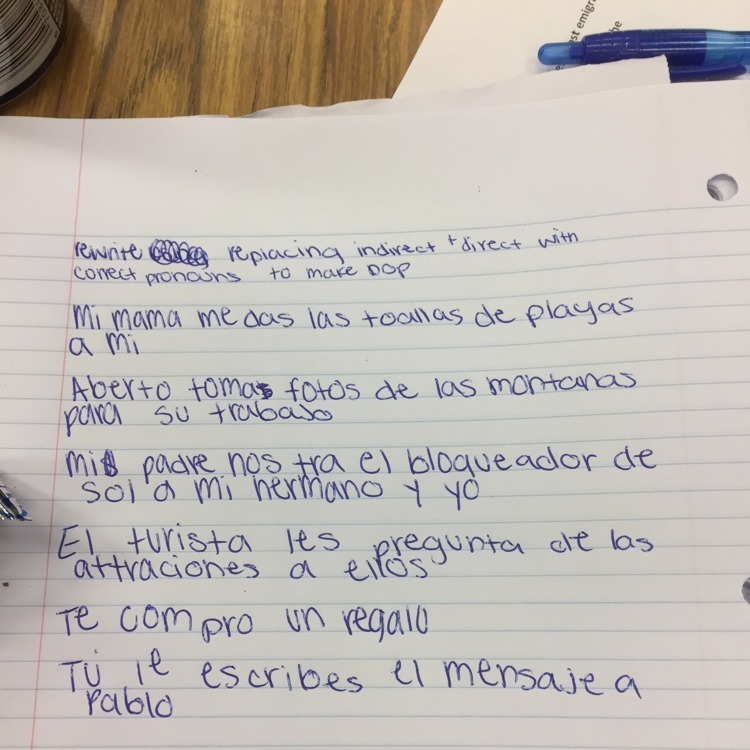 st emigr
he
rewrite replacing indirect + direct with
correct pronouns to make DOP
Mi mama me das las toallas de playas
a mi
Aberto tomas fotos de las montanas
para su trabajo
mi padre nos tra el bloqueador de
sol a mi hermano y yo
El turista les pregunta de las
attraciones a ellos
Te compro un regalo
Tú le escribes el mensaje a
Pablo